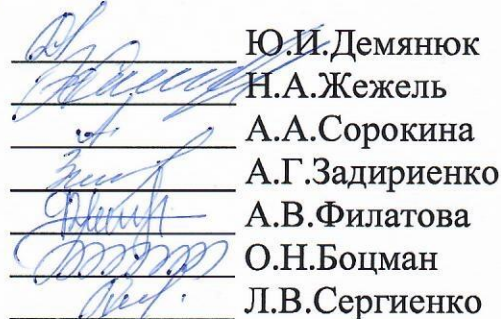 Ю.И.Демянюк
Н.А.Жежель
А.А.Сорокина
А.Г.Задириенко
А.В.Филатова
О.Н.Боцман
Л.В.Сергиенко